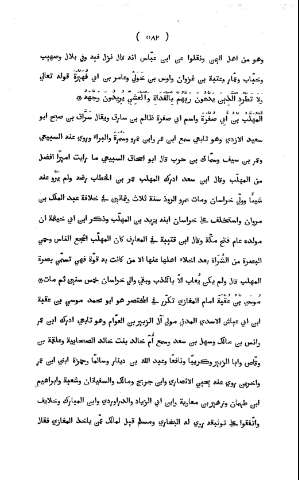 ( ٥٨٢ )
وهو من اهل اليمن ونقلوا عن ابن عباس انه قال نزل فيه وفي بلال وصهيب
وخباب وعمار وعتبة بن غزوان واوس بن خولي وعامر بن ابي فهيرة قوله تعالى
ولا تطرد الذين يدعون ربهم بالغداة والعشي يريدون وجهه
المهلب بن أبي صفرة واسم ابي صفرة ظالم بن سارق ويقال سراق بن صبح ابو
سعيد الازدي وهو تابعي سمع ابن عمر وابن عمرو وسمرة والبراء وروى عنه السبيعي
وعمر بن سيف وسماك بن حرب قال ابو اسحاق السبيعي ما رايت اميرا افضل
من المهلب وقال ابن سعد ادرك المهلب عمر بن الخطاب رضه ولم يرو عنه
شيئا وولي خراسان ومات بمرو الروذ سنة ثلاث وثمانين في خلافة عبد الملك بن
مروان واستخلف على خراسان ابنه يزيد بن المهلب وذكر ابن ابي خيثمة ان
مولده عام فتح مكة وقال ابن قتيبة في المعارف كان المهلب اشجع الناس وحمى
البصرة من الشراة بعد اجلاء اهلها عنها الا من كانت به قوة فهي تسمى بصرة
المهلب قال ولم يكن يعاب الا بالكذب وولي خراسان خمس سنين
موسى بن عقبة امام المغازي تكرر في المختصر هو ابو محمد موسى بن عقبة
ابن ابي عياش الاسدي المدني مولى آل الزبير بن العوام وهو تابعي ادرك ابن عمر
وانس بن مالك وسهل بن سعد وسمع أم خالد بنت خالد الصحابية وعلقمة بن
وقاص وابا الزبير وكريبا ونافعا وعبد الله بن دينار وسالما وحمزة ابني ابن عمر
واخرين روى عنه يحيى الانصاري وابن جريج ومالك والسفيانان وشعبة وابراهيم
ابن طهمان وزهير بن معاوية وابن ابي الزناد والدراوردي وابن المبارك وخلايق
واتفقوا على توثيقه روى له البخاري ومسلم قيل لمالك عمن ناخذ المغازي فقال